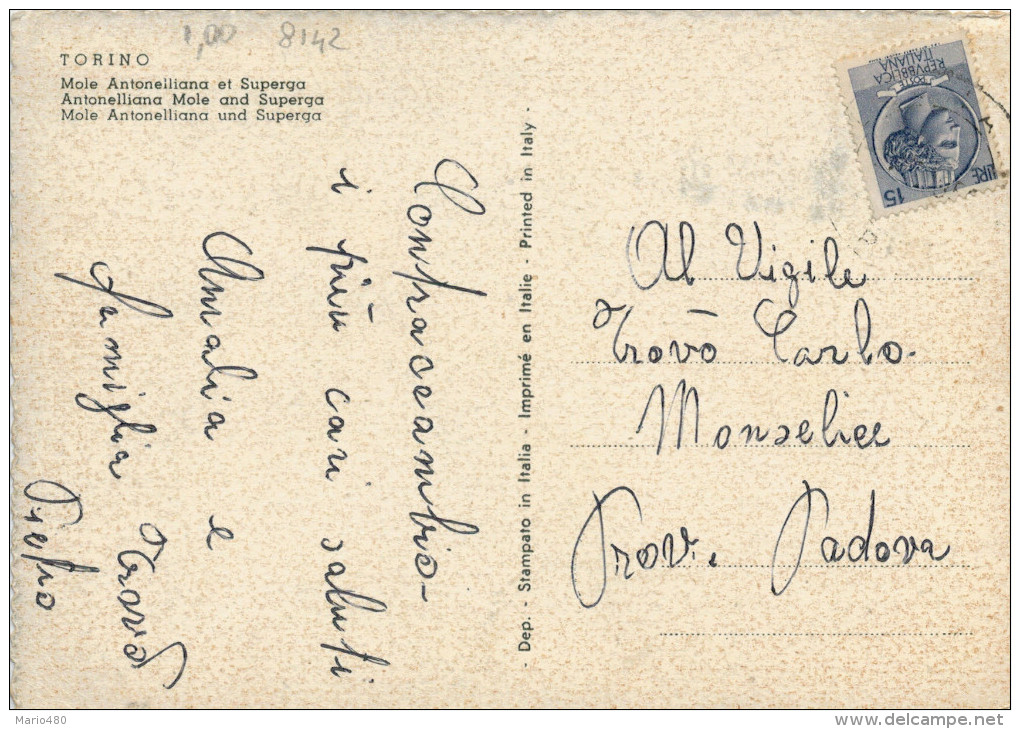 1,00 8142
TORINO
Mole Antonelliana et Superga
Antonelliana Mole and Superga
Mole Antonelliana und Superga
Contraccambio-
i più cari saluti
Amalia e
famiglia Trovò
Pietro
- Dep. - Stampato in Italia - Imprimé en Italie - Printed in Italy -
POSTE
REPVBBLICA
ITALIANA
LIRE 15
Al Vigile
Trovò Carlo.
Monselice
Prov. Padova
Mario480
delcampe.net